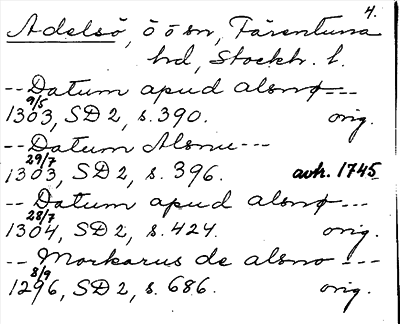 4.
Adelsö, ö ö sn, Färentuna
hd, Stockh. l.
-- Datum apud alsnø ---
1303 9/5, SD 2, s. 390. orig.
-- Datum Alsnu ---
1303 29/7, SD 2, s. 396. avh. 1745
-- Datum apud alsnø ---
1304 28/7, SD 2, s. 424. orig.
-- Markarus de alsno ---
1296 8/9, SD 2, s. 686. orig.